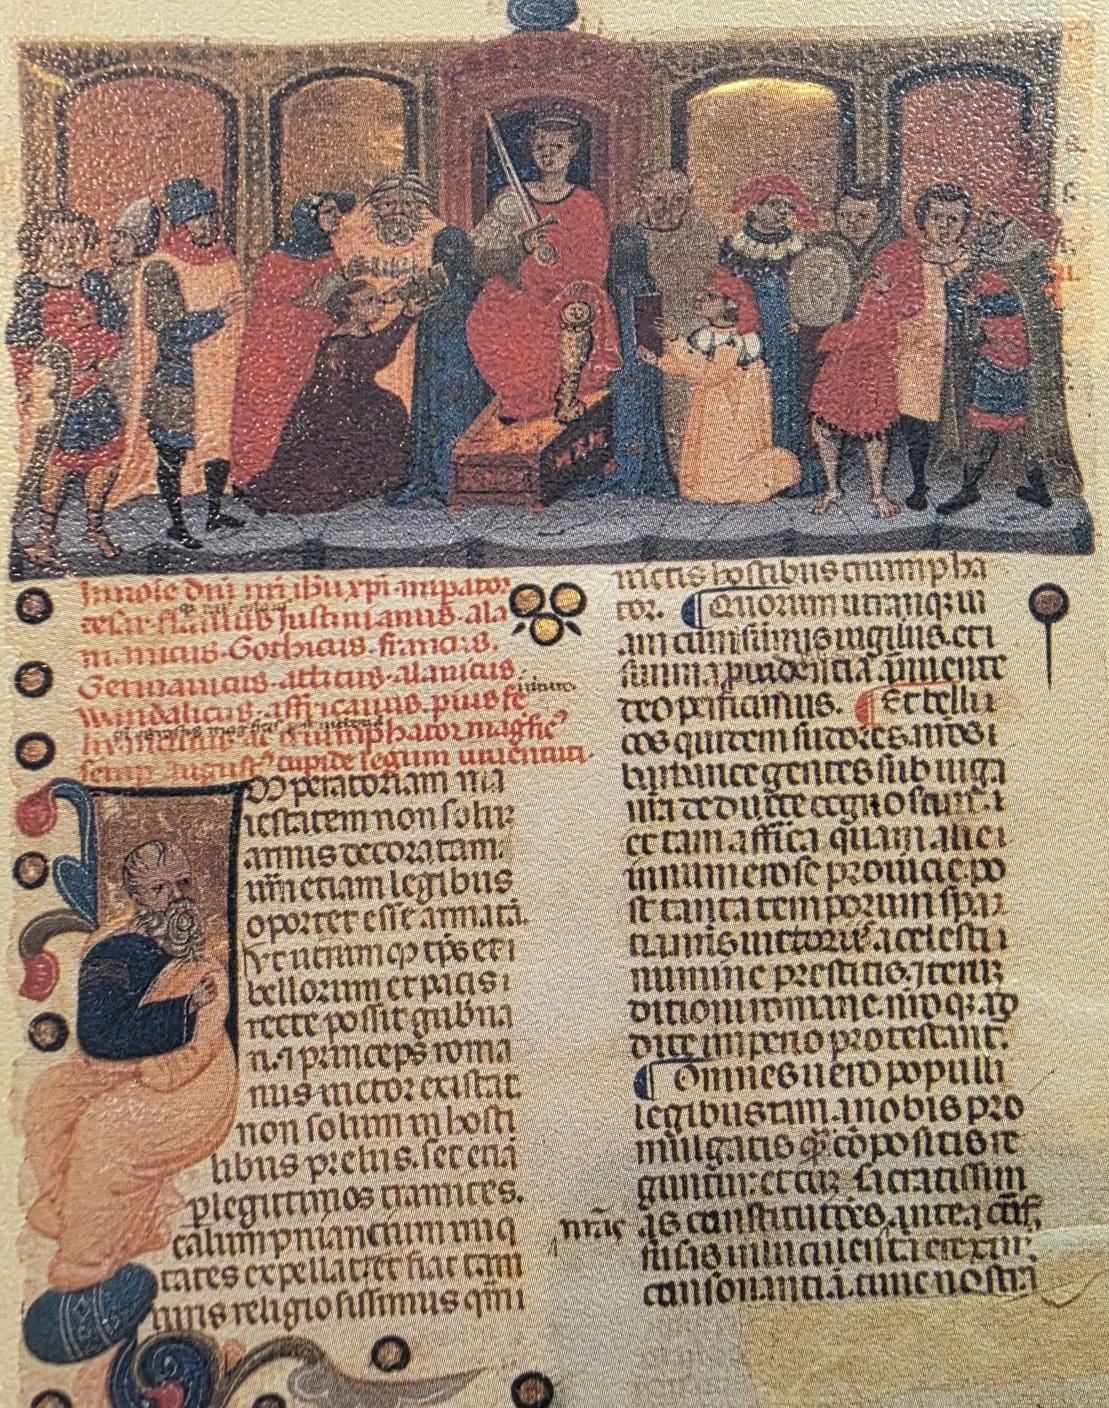 In noīe dn̄i nr̄i ih̄u xp̄i. imp̄ator
cesar. flauius Justinianus. ala
manicus. Gothicus. francis.
Germanicus. atticus. alanicus.
Wandalicus. affricanus. pius fe
ac triumphator
semp̄ august᾽ cupide legum iuuentuti.
Imperatoriam ma
iestatem non solū
armis decoratam.
um̄ etiam legibus
oportet esse armatā.
vt utrum qꝫ tp̄s et i
bellorum et pacis i
recte possit gub̄na
ri. ⁊ princeps roma
nus uictor existat
non solum in hosti
libus preliis. set etiā
ꝑ legittimos tramites.
calumpniancium iniq
tates expellat: et fiat tam
iuris religiosissimus qm̄
uictis hostibus triumpha
tor. ¶ Quorum utranqꝫ ui
am cum sumis uigiliis. et i
summa prouidencia annuente
deo perficimus. ¶ Et belli
cos quidem sudores. nr̄os i
barbarice gentes sub iuga
nr̄a deducte cognoscunt. i
et tam affrica quam alie i
innumerose prouincie. po
st tanta temporum spaci
a nr̄is uictoriis a celesti i
numine prestitis. iterū
dicioni romane. nr̄oqꝫ ad
dite imperio protestant᾽.
¶ Omnes uero populli
legibus tam. a nobis pro
mulgatis qm̄ cōpositis re
guntur: et cum sacratissim
nr̄as as constitutiōes. antea cōf
fusas in luculentā
consonanciā. tunc nostrā